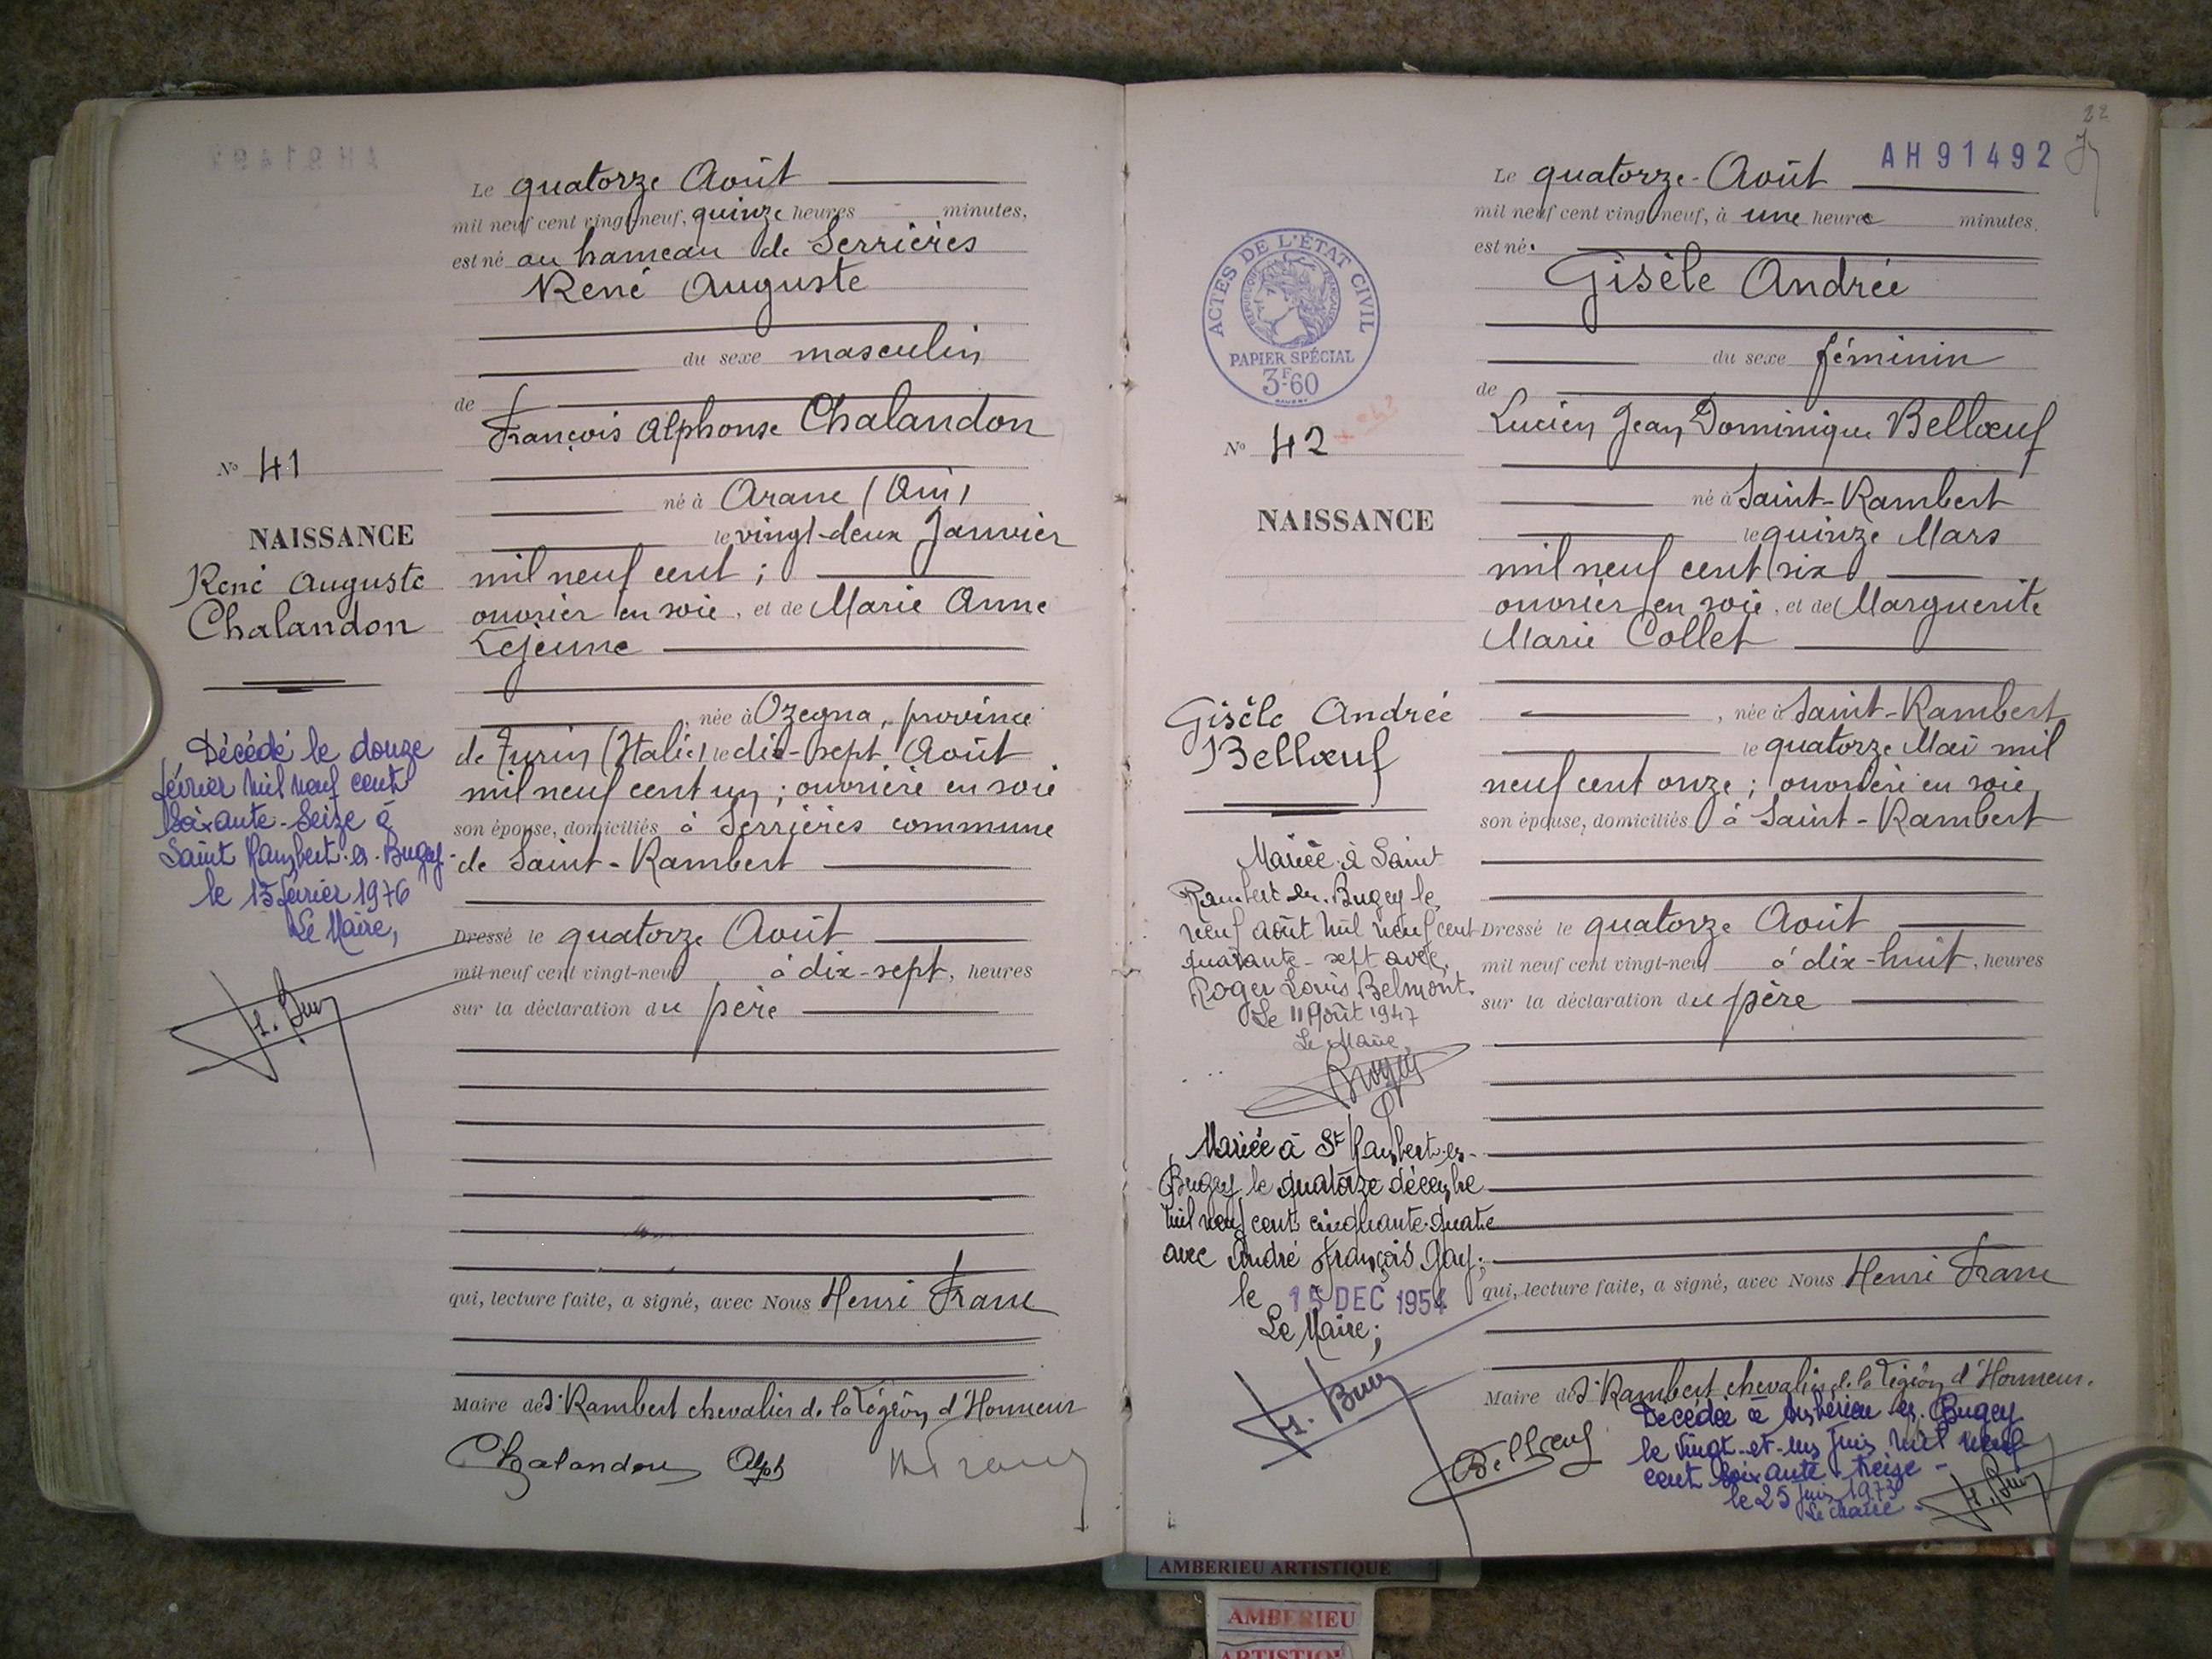 Le quatorze Août
mil neuf cent vingt-neuf, quinze heures minutes,
est né au hameau de Serrières
René Auguste
du sexe masculin
de
François Alphonse Chalandon
N° 41
né à Arane (Ain)
NAISSANCE
le vingt-deux Janvier
René Auguste
Chalandon
mil neuf cent ;
ouvrier en soie, et de Marie Anne
Lejeune
, née à Ozegna, province
de Turin (Italie), le dix-sept Août
mil neuf cent un ; ouvrière en soie
son épouse, domiciliés à Serrières commune
de Saint-Rambert
Décédé le douze
février mil neuf cent
soixante-seize à
Saint Rambert-en-Bugey
le 13 février 1976
Le Maire,
Dressé le quatorze Août
mil neuf cent vingt-neuf à dix-sept, heures
sur la déclaration du père
qui, lecture faite, a signé, avec Nous Henri Franc
Maire de St Rambert chevalier de la Légion d'Honneur
Chalandon Alph
22
AH91492
Le quatorze Août
mil neuf cent vingt neuf, à une heure minutes.
est né
Gisèle Andrée
ACTES DE L'ÉTAT CIVIL
RÉPUBLIQUE FRANÇAISE
PAPIER SPÉCIAL
3F60
du sexe féminin
de
Lucien Jean Dominique Bellœuf
N° 42
né à Saint-Rambert
NAISSANCE
le quinze Mars
mil neuf cent six
ouvrier en soie, et de Marguerite
Marie Collet
, née à Saint-Rambert
Gisèle Andrée
Bellœuf
le quatorze Mai mil
neuf cent onze ; ouvrière en soie,
son épouse, domiciliés à Saint-Rambert
Mariée à Saint
Rambert en-Bugey le
neuf août mil neuf cent
quarante-sept avec
Roger Louis Belmont.
Le 11 Août 1947
Le Maire,
Dressé le quatorze Août
mil neuf cent vingt-neuf à dix-huit, heures
sur la déclaration du père
Mariée à St Rambert-en-
Bugey le quatorze décembre
mil neuf cent cinquante-quatre
avec André François Gay ;
le 15 DEC 1954
Le Maire ;
qui, lecture faite, a signé, avec Nous Henri Franc
Maire de St Rambert chevalier de la Légion d'Honneur.
Bellœuf
Décédée à Ambérieu en Bugey
le vingt-et-un juin mil neuf
cent soixante-treize -
le 25 juin 1973
Le Maire
AMBERIEU ARTISTIQUE
AMBERIEU
ARTISTIQU